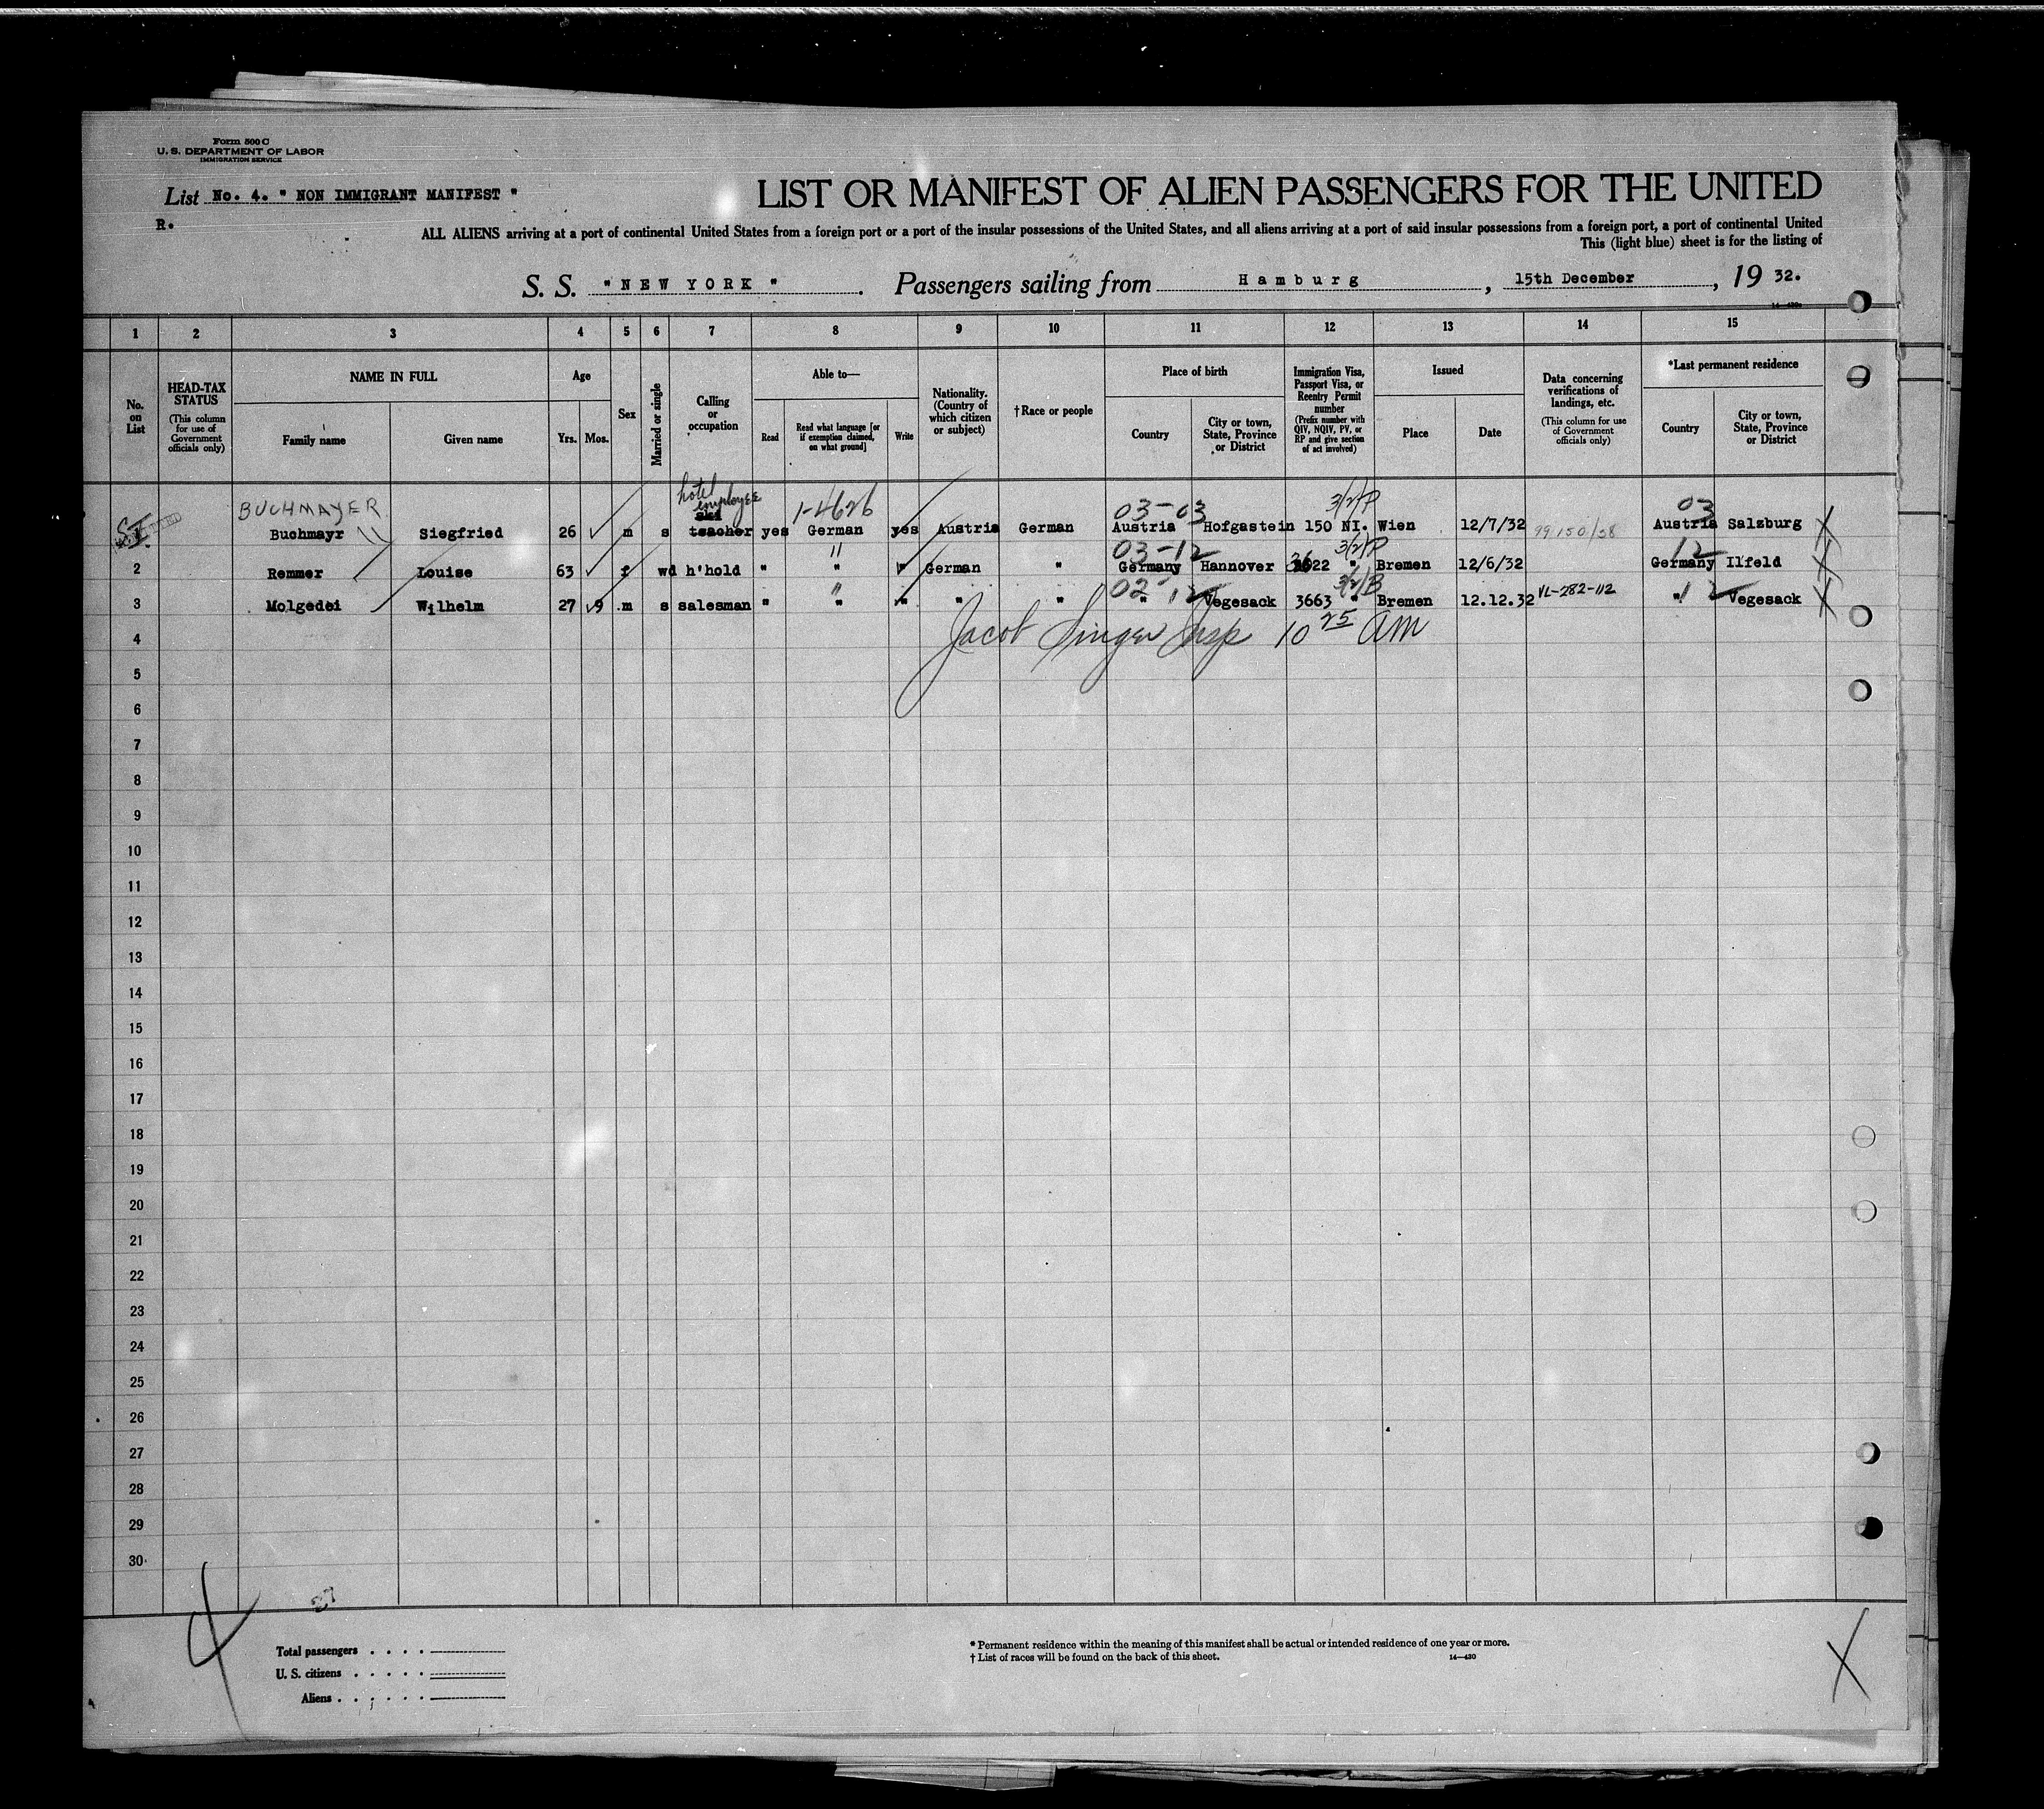 Form 500 C
U. S. DEPARTMENT OF LABOR
IMMIGRATION SERVICE
List No. 4. " NON IMMIGRANT MANIFEST "
R.
LIST OR MANIFEST OF ALIEN PASSENGERS FOR THE UNITED
ALL ALIENS arriving at a port of continental United States from a foreign port or a port of the insular possessions of the United States, and all aliens arriving at a port of said insular possessions from a foreign port, a port of continental United
This (light blue) sheet is for the listing of
S. S. " N E W Y O R K ". Passengers sailing from H a m b u r g , 15th December , 19 32.
14—430
1 2 3 4 5 6 7 8 9 10 11 12 13 14 15
No. on List
HEAD-TAX STATUS (This column for use of Government officials only)
NAME IN FULL
Family name Given name
Age
Yrs. Mos.
Sex
Married or single
Calling or occupation
Able to—
Read Read what language [or if exemption claimed, on what ground] Write
Nationality. (Country of which citizen or subject)
†Race or people
Place of birth
Country City or town, State, Province or District
Immigration Visa, Passport Visa, or Reentry Permit number (Prefix number with QIV, NQIV, PV, or RP and give section of act involved)
Issued
Place Date
Data concerning verifications of landings, etc. (This column for use of Government officials only)
*Last permanent residence
Country City or town, State, Province or District
BUCHMAYER hotel employee 1-4626 03-03 3/2/P 03
SI Buchmayr Siegfried 26 m s ski teacher yes German yes Austria German Austria Hofgastein 150 NI. Wien 12/7/32 99 150/38 Austria Salzburg
" 03-12 3/2/P 12
2 Remmer Louise 63 f wd h'hold " " " German " Germany Hannover 3622 " Bremen 12/6/32 Germany Ilfeld
" 02-12 3/2/B 12
3 Molgedei Wilhelm 27 9 m s salesman " " " " " " Vegesack 3663 " Bremen 12.12.32 VL-282-112 " Vegesack
Jacob Singer Insp 10 25 AM
4
5
6
7
8
9
10
11
12
13
14
15
16
17
18
19
20
21
22
23
24
25
26
27
28
29
30
4
27
Total passengers . . . .
U. S. citizens . . . . .
Aliens . . . . . .
* Permanent residence within the meaning of this manifest shall be actual or intended residence of one year or more.
† List of races will be found on the back of this sheet.
14—430
X